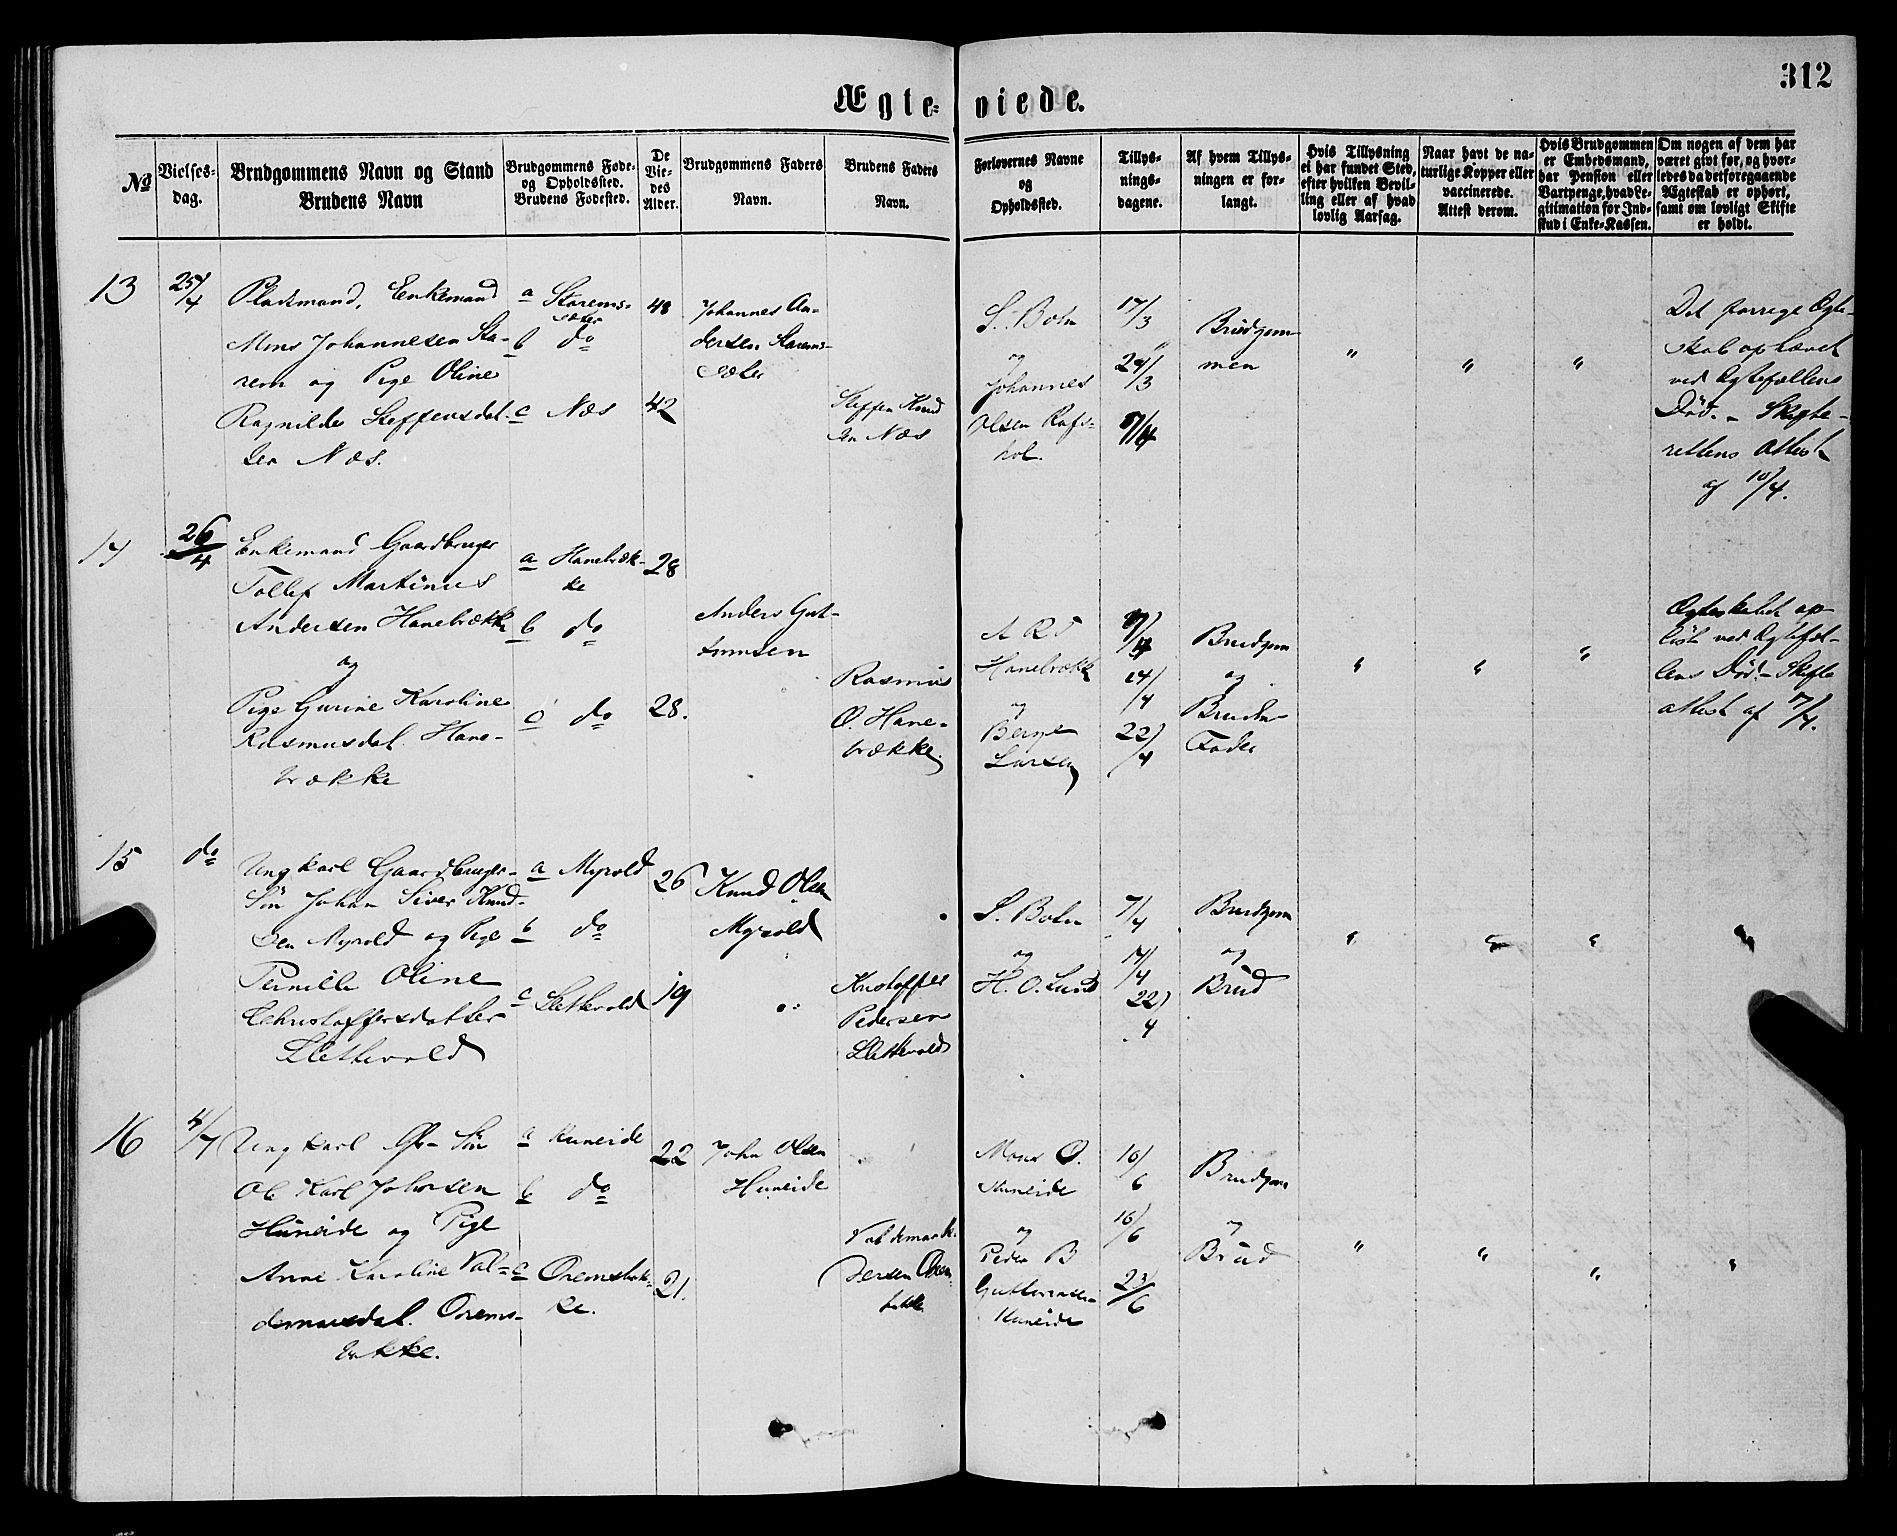 312
Ægte- viede.
No
Vielses-
dag.
Brudgommens Navn og Stand
Brudens Navn
Brudgommens Føde-
og Opholdssted.
Brudens Fødested.
De
Vie-
des
Alder.
Brudgommens Faders
Navn.
Brudens Faders
Navn.
Forlovernes Navne
og
Opholdssted.
Tillys-
nings-
dagene.
Af hvem Tillys-
ningen er for-
langt.
Hvis Tillysning
ei har fundet Sted,
efter hvilken Bevil-
ling eller af hvad
lovlig Aarsag.
Naar havt de na-
turlige Kopper eller
vaccinerede.
Attest derom.
Hvis Brudgommen
er Embedsmand,
har Pension eller
Vartpenge, hvad Le-
gitimation for Ind-
skud i Enke-Kassen.
Om nogen af dem har
været givt før, og hvor-
ledes da det foregaaende
Ægteskab er ophørt,
samt om lovligt Skifte
er holdt.
13
25/4
Pladsmand, Enkemand
Mons Johannesen Sta-
rem og Pige Oline
Ragnilde Steffensdat-
ter Næs.
a Starems-
sæter
b do
c Næs
48
42
Johannes An-
dersen Starems-
sæter
Steffen Knud
sen Næs
S. Bolm
og
Johannes
Olsen Rafs-
hol.
17/3
24/3
Brudgom
men
" " "
Det forrige Ægte-
skab ophævet
ved Ægtefællens
Død. - Skifte-
rettens Attest
af 10/4.
14
26/4
Enkemand Gaardbruger
Tollef Martinus
Andersen Hanebrække
og
Pige Gurine Karoline
Rasmusdat. Hane-
brække
a Hanebræk-
ke
b do
c do
28
28.
Anders Gut-
tormsen
Rasmus
O. Hane-
brække
Hanebrække
og
Larsen
14/4
22/4
Brudgom
og
Brudens
Fader
" " "
Ægteskabet op-
løst ved Ægtefæl-
lens Død. - Skifte
attest af 7/4.
15
do
Ungkarl Gaardbruger-
Søn Johan Siver Knud-
sen Myrold og Pige
Pernille Oline
Christoffersdatter
Slettevold
a Myrold
b do
c Slettevold
26
19
Knud Olsen
Myrold
Kristoffer
Pedersen
Slettevold
S. Bolm
og
H. O. Lund
7/4
14/4
22/4
Brudgom
og
Brud
" " " "
16
4/7
Ungkarl Gbr Søn
Ol Karl Johnsen
Huneide og Pige
Anne Karoline Val-
demarsdat. Orems-
bakke.
a Huneide
b do
c Oremsbak-
ke.
22
21.
John Olsen
Huneide
Mons O.
Huneide
og
Peder B
Guttormsen
Huneide
16/6
23/6
Brudgom
og
Brud
" " " "